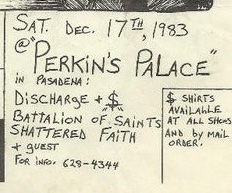 SAT. DEC. 17TH, 1983
@ "PERKIN'S PALACE"
IN PASADENA:
DISCHARGE + $
BATTALION OF SAINTS
SHATTERED FAITH
+ GUEST
FOR INFO. 628-4344
$ SHIRTS
AVAILABLE
AT ALL SHOWS
AND BY MAIL
ORDER.